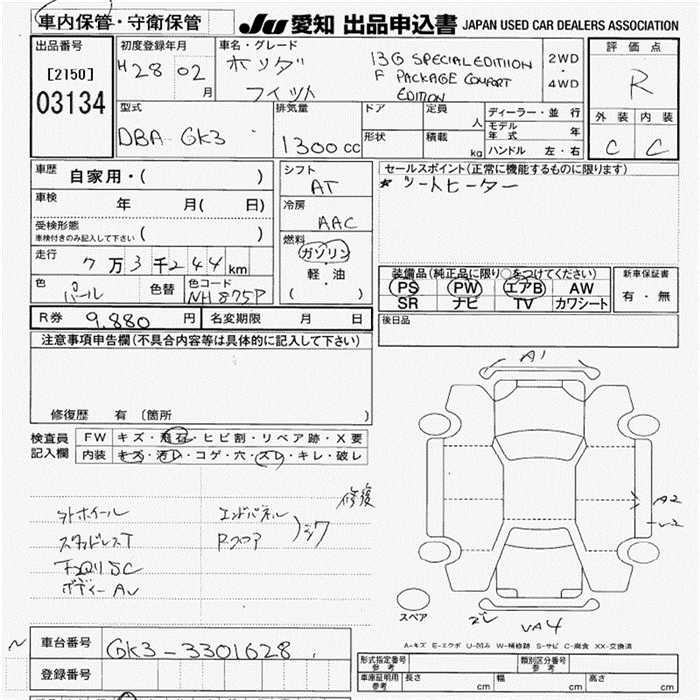 車内保管・守衛保管
JU 愛知 出品申込書 JAPAN USED CAR DEALERS ASSOCIATION
出品番号
[2150]
03134
初度登録年月
H28 02
月
車名・グレード
ホンダ
フィット
13G SPECIAL EDITION
F PACKAGE COMFORT
EDITION
2WD
・
4WD
評価点
R
外装 内装
C C
型式
DBA-GK3
排気量
1300cc
ドア
形状
定員
人
積載
kg
ディーラー・並行
モデル年式 年
ハンドル 左・右
車歴 自家用・( )
車検 年 月( 日)
受検形態
車検付きのみ記入して下さい ( )
走行 7万3千244km
色 パール 色替 色コード NH875P
シフト
AT
冷房
AAC
燃料
ガソリン
・
軽・油
( )
セールスポイント(正常に機能するものに限ります)
* シートヒーター
装備品(純正品に限り○をつけてください)
PS PW エアB AW
SR ナビ TV カワシート
新車保証書
有・無
R券 9,880円 名変期限 月 日
後日品
注意事項申告欄(不具合内容等は具体的に記入して下さい)
修復歴 有 (箇所 )
検査員
記入欄
FW キズ・飛石・ヒビ割・リペア跡・X要
内装 キズ・汚レ・コゲ・穴・スレ・キレ・破レ
修復
外ホイール
スタッドレスT
下回りSC
ボディーAu
エンドパネル
Rスコア
A1
A2
スペア
ズレ
VA4
A-キズ E-エクボ U-凹み W-補修跡 S-サビ C-腐食 XX-交換済
車台番号 GK3-3301628
登録番号
形式指定番号
参考
類別区分番号
参考
車庫証明用
参考
長さ cm 幅 cm 高さ cm